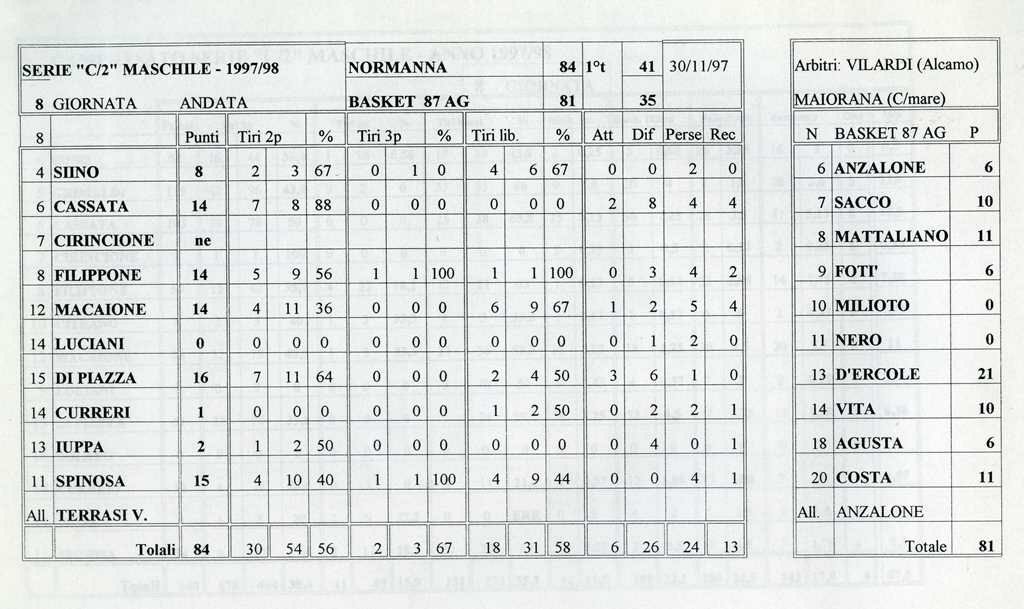 SERIE "C/2" MASCHILE - 1997/98 NORMANNA 84 1°t 41 30/11/97
8 GIORNATA ANDATA BASKET 87 AG 81 35
8 Punti Tiri 2p % Tiri 3p % Tiri lib. % Att Dif Perse Rec
4 SIINO 8 2 3 67 0 1 0 4 6 67 0 0 2 0
6 CASSATA 14 7 8 88 0 0 0 0 0 0 2 8 4 4
7 CIRINCIONE ne
8 FILIPPONE 14 5 9 56 1 1 100 1 1 100 0 3 4 2
12 MACAIONE 14 4 11 36 0 0 0 6 9 67 1 2 5 4
14 LUCIANI 0 0 0 0 0 0 0 0 0 0 0 1 2 0
15 DI PIAZZA 16 7 11 64 0 0 0 2 4 50 3 6 1 0
14 CURRERI 1 0 0 0 0 0 0 1 2 50 0 2 2 1
13 IUPPA 2 1 2 50 0 0 0 0 0 0 0 4 0 1
11 SPINOSA 15 4 10 40 1 1 100 4 9 44 0 0 4 1
All. TERRASI V.
Tolali 84 30 54 56 2 3 67 18 31 58 6 26 24 13
Arbitri: VILARDI (Alcamo)
MAIORANA (C/mare)
N BASKET 87 AG P
6 ANZALONE 6
7 SACCO 10
8 MATTALIANO 11
9 FOTI' 6
10 MILIOTO 0
11 NERO 0
13 D'ERCOLE 21
14 VITA 10
18 AGUSTA 6
20 COSTA 11
All. ANZALONE
Totale 81